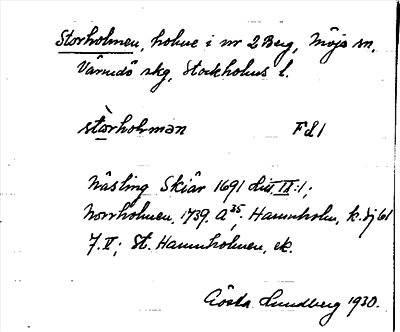 Storholmen, holme i nr 2 Berg, Möja sn,
Värmdö skg, Stockholms l.
stòrholman Fd1
Nästing Skiär 1691 litt IX:1;
Norrholmen, 1739. A 35; Hamnholm, k. bl 61
7.V; St. Hamnholmen, ek.
Gösta Lundberg 1930.